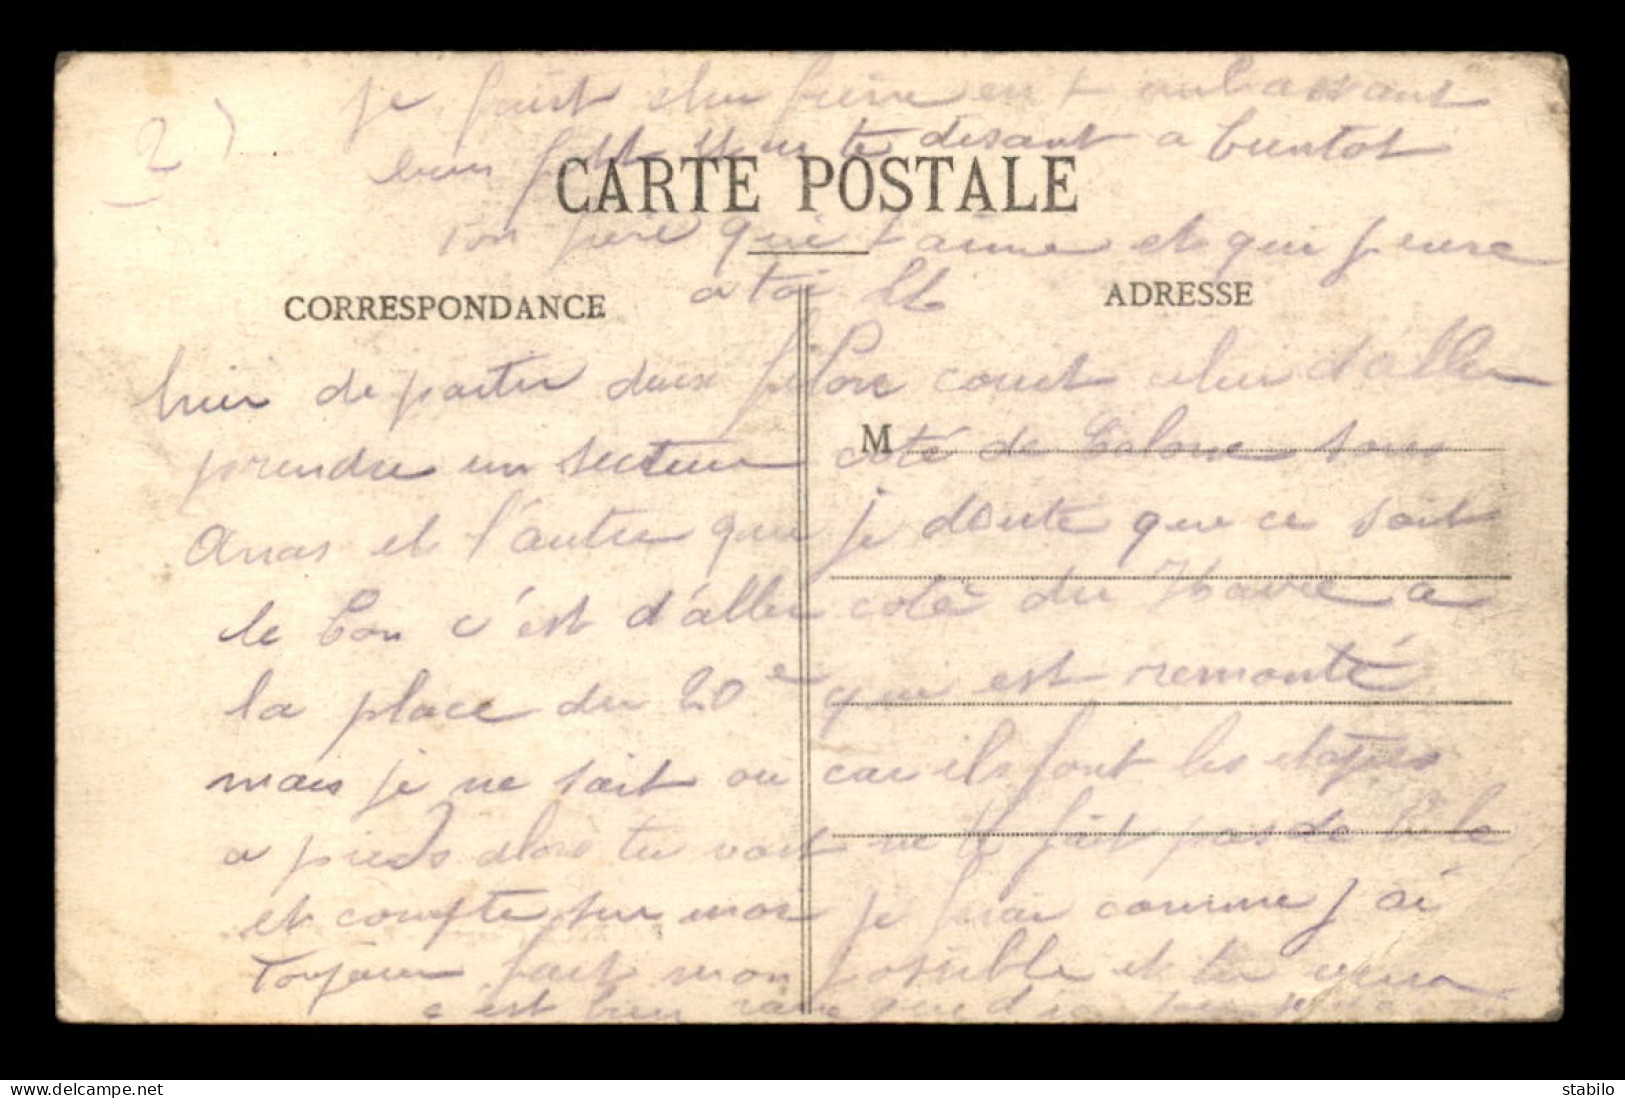 2)
je finit cher frère en t'embrassant
bien fort en te disant a bientot
CARTE POSTALE
ton frere qui t'aime et qui pense
a toi
CORRESPONDANCE
ADRESSE
hier de partir deux filons court celui d'aller
M
prendre un secteur coté de Calone sous
Arras et l'autre que je doute que ce soit
le bon c'est d'aller coté du Havre a
la place du 20e qui est remonté
mais je ne sait ou car ils font les etapes
a pieds alors tu voit ne te fait pas de bile
et compte sur moi je ferai comme j'ai
toujours fait mon possible et tu verra
c'est bien rare quand
stabilo
www.delcampe.net